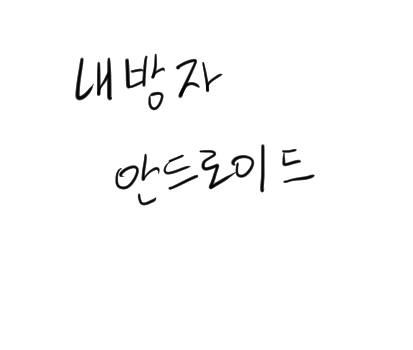 내방자
안드로이드